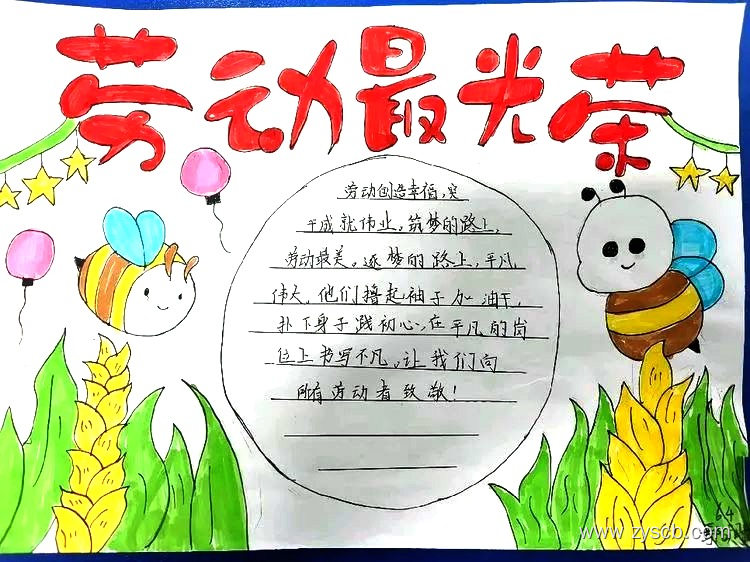 劳动最光荣
劳动创造幸福,实
干成就伟业,筑梦的路上,
劳动最美。逐梦的路上,平凡
伟大,他们撸起袖子加油干,
扑下身子践初心,在平凡的岗
位上书写不凡,让我们向
所有劳动者致敬!
64
www.zyscb.com